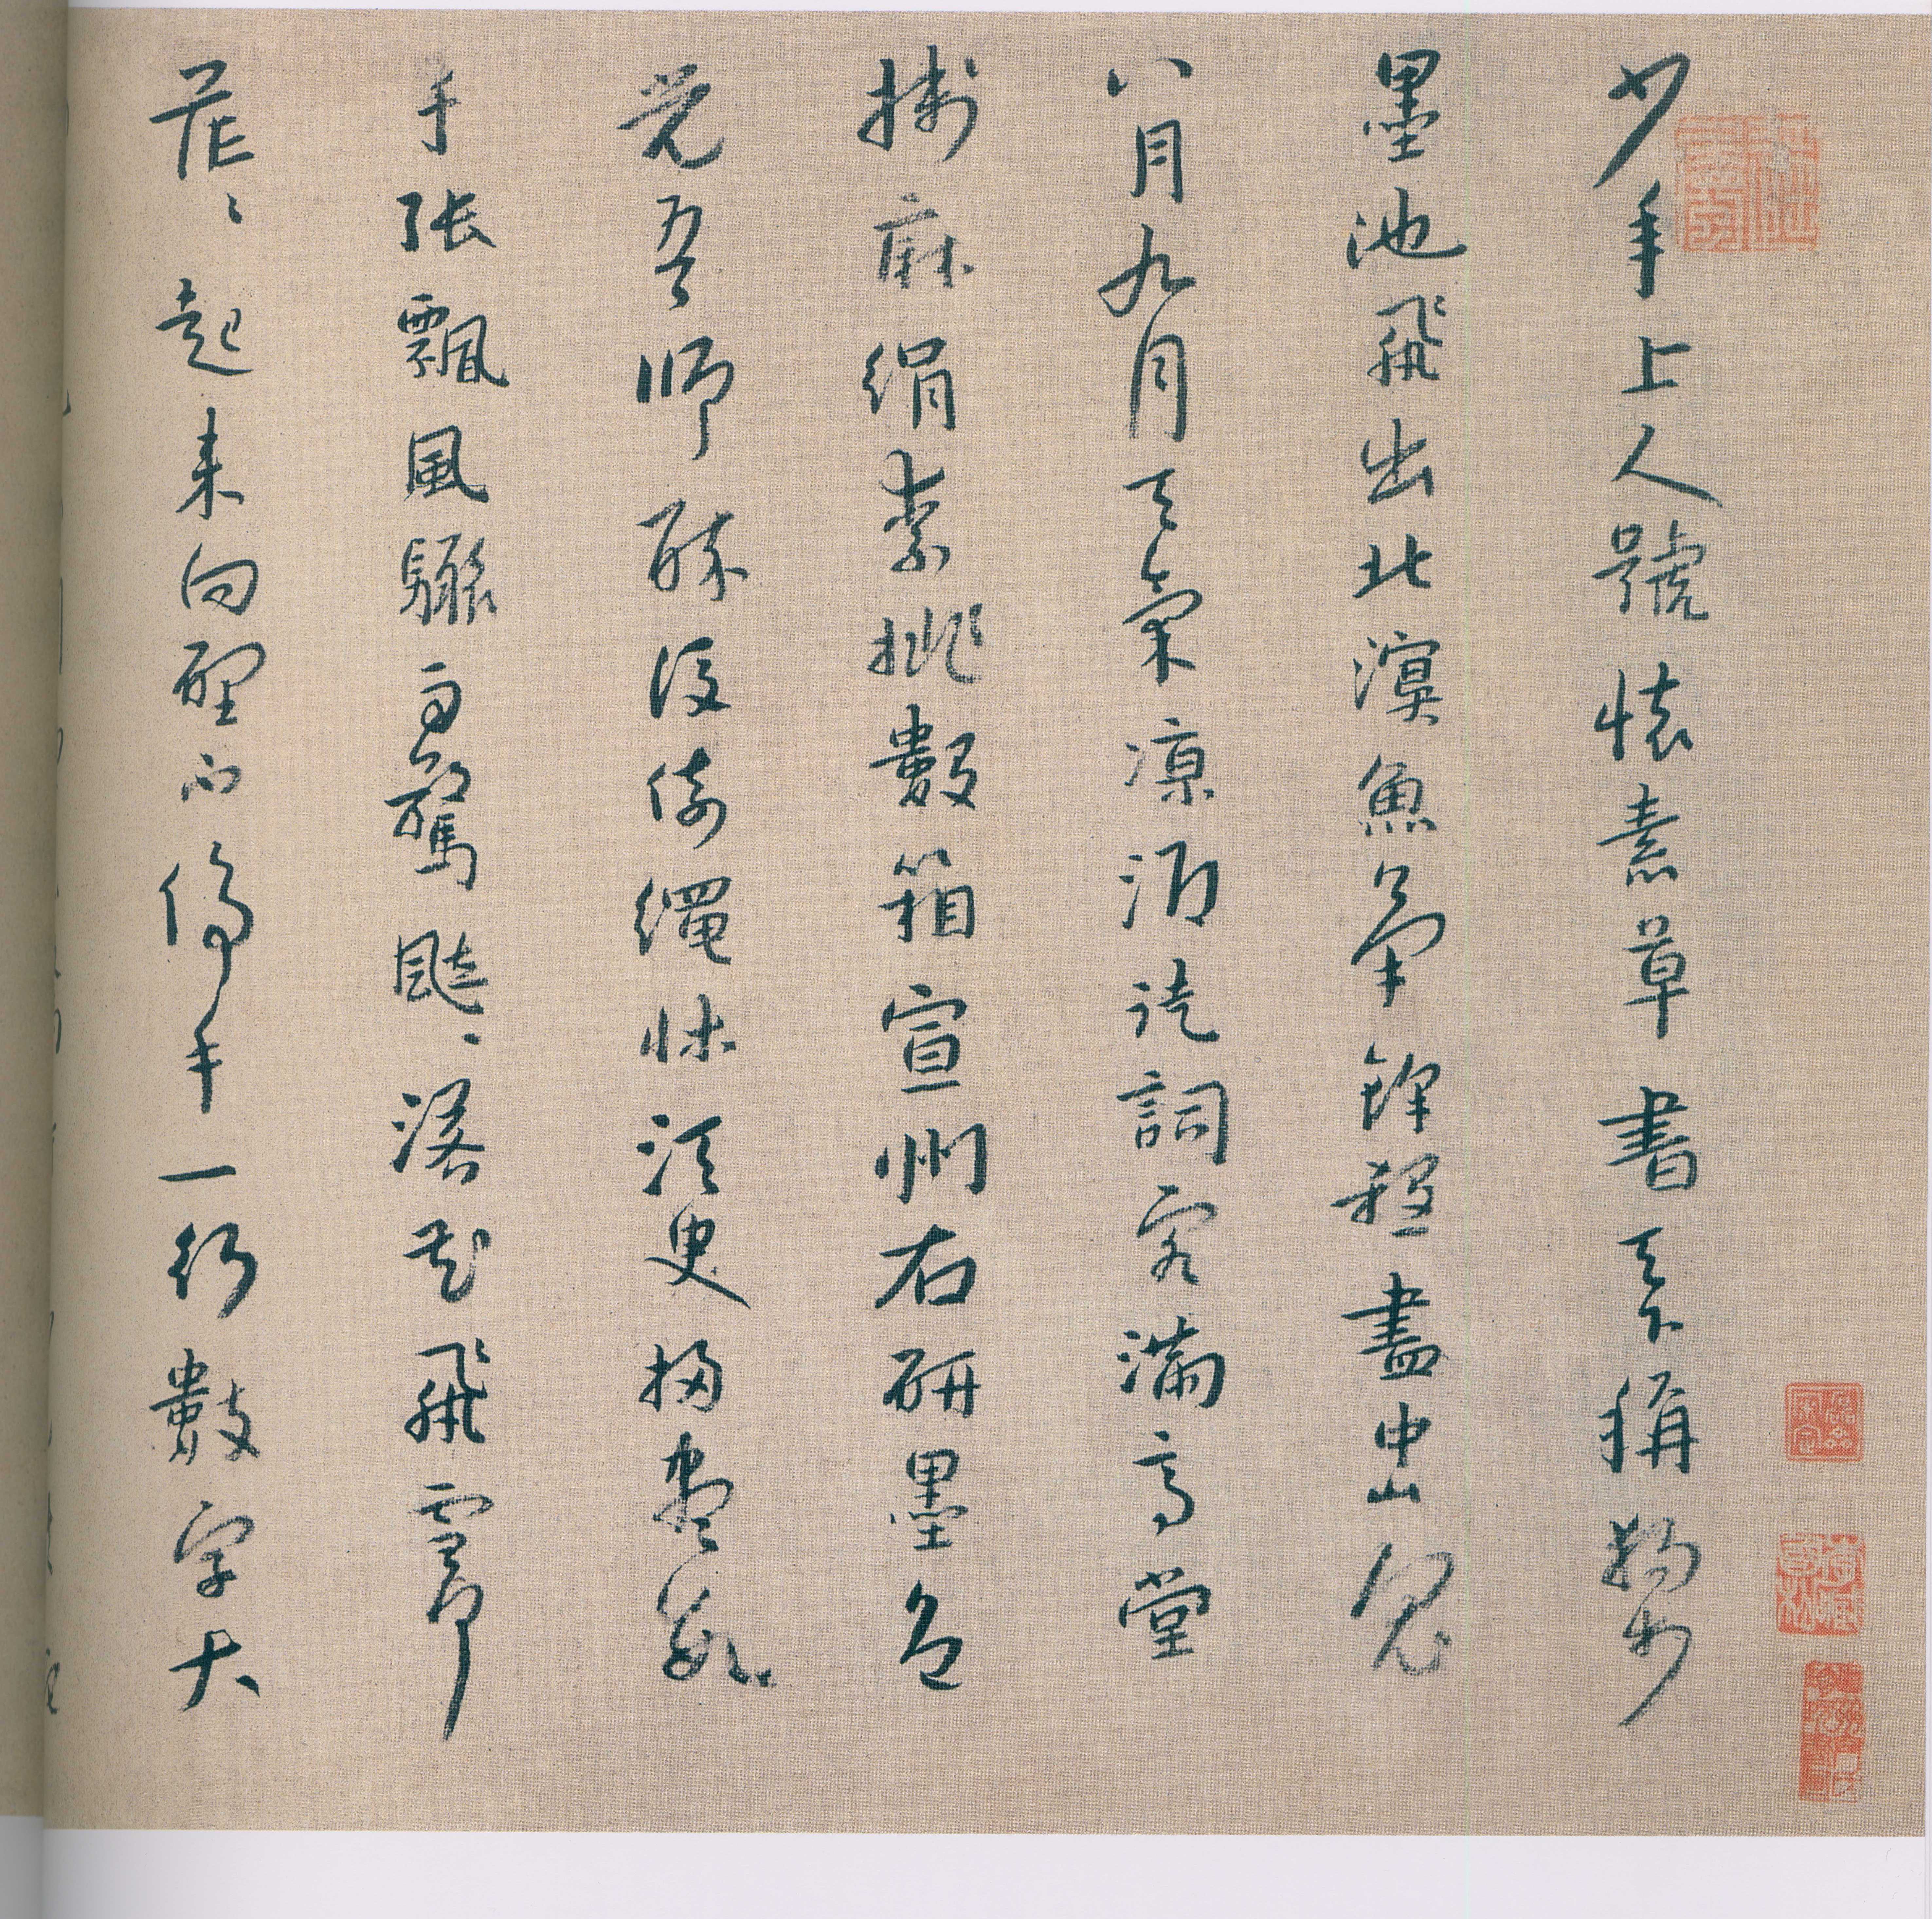 少年上人號懷素草書天下稱獨步
墨池飛出北溟魚筆鋒殺盡中山兔
八月九月天氣涼酒徒詞客滿高堂
牋麻絹素排數箱宣州石研墨色
光吾師醉後倚繩牀須臾掃盡數
千張飄風驟雨驚颯〻落花飛雪何
茫〻起來向壁不停手一行數字大